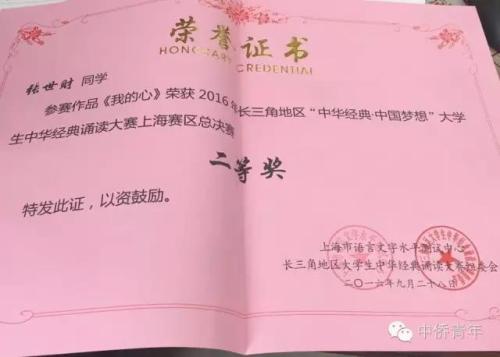 荣誉证书
HONORARY CREDENTIAL
张世财 同学
参赛作品《我的心》荣获2016年长三角地区“中华经典·中国梦想”大学
生中华经典诵读大赛上海赛区总决赛
二等奖
特发此证，以资鼓励。
上海市语言文字水平测试中心
长三角地区大学生中华经典诵读大赛组委会
二〇一六年九月二十八日
中侨青年